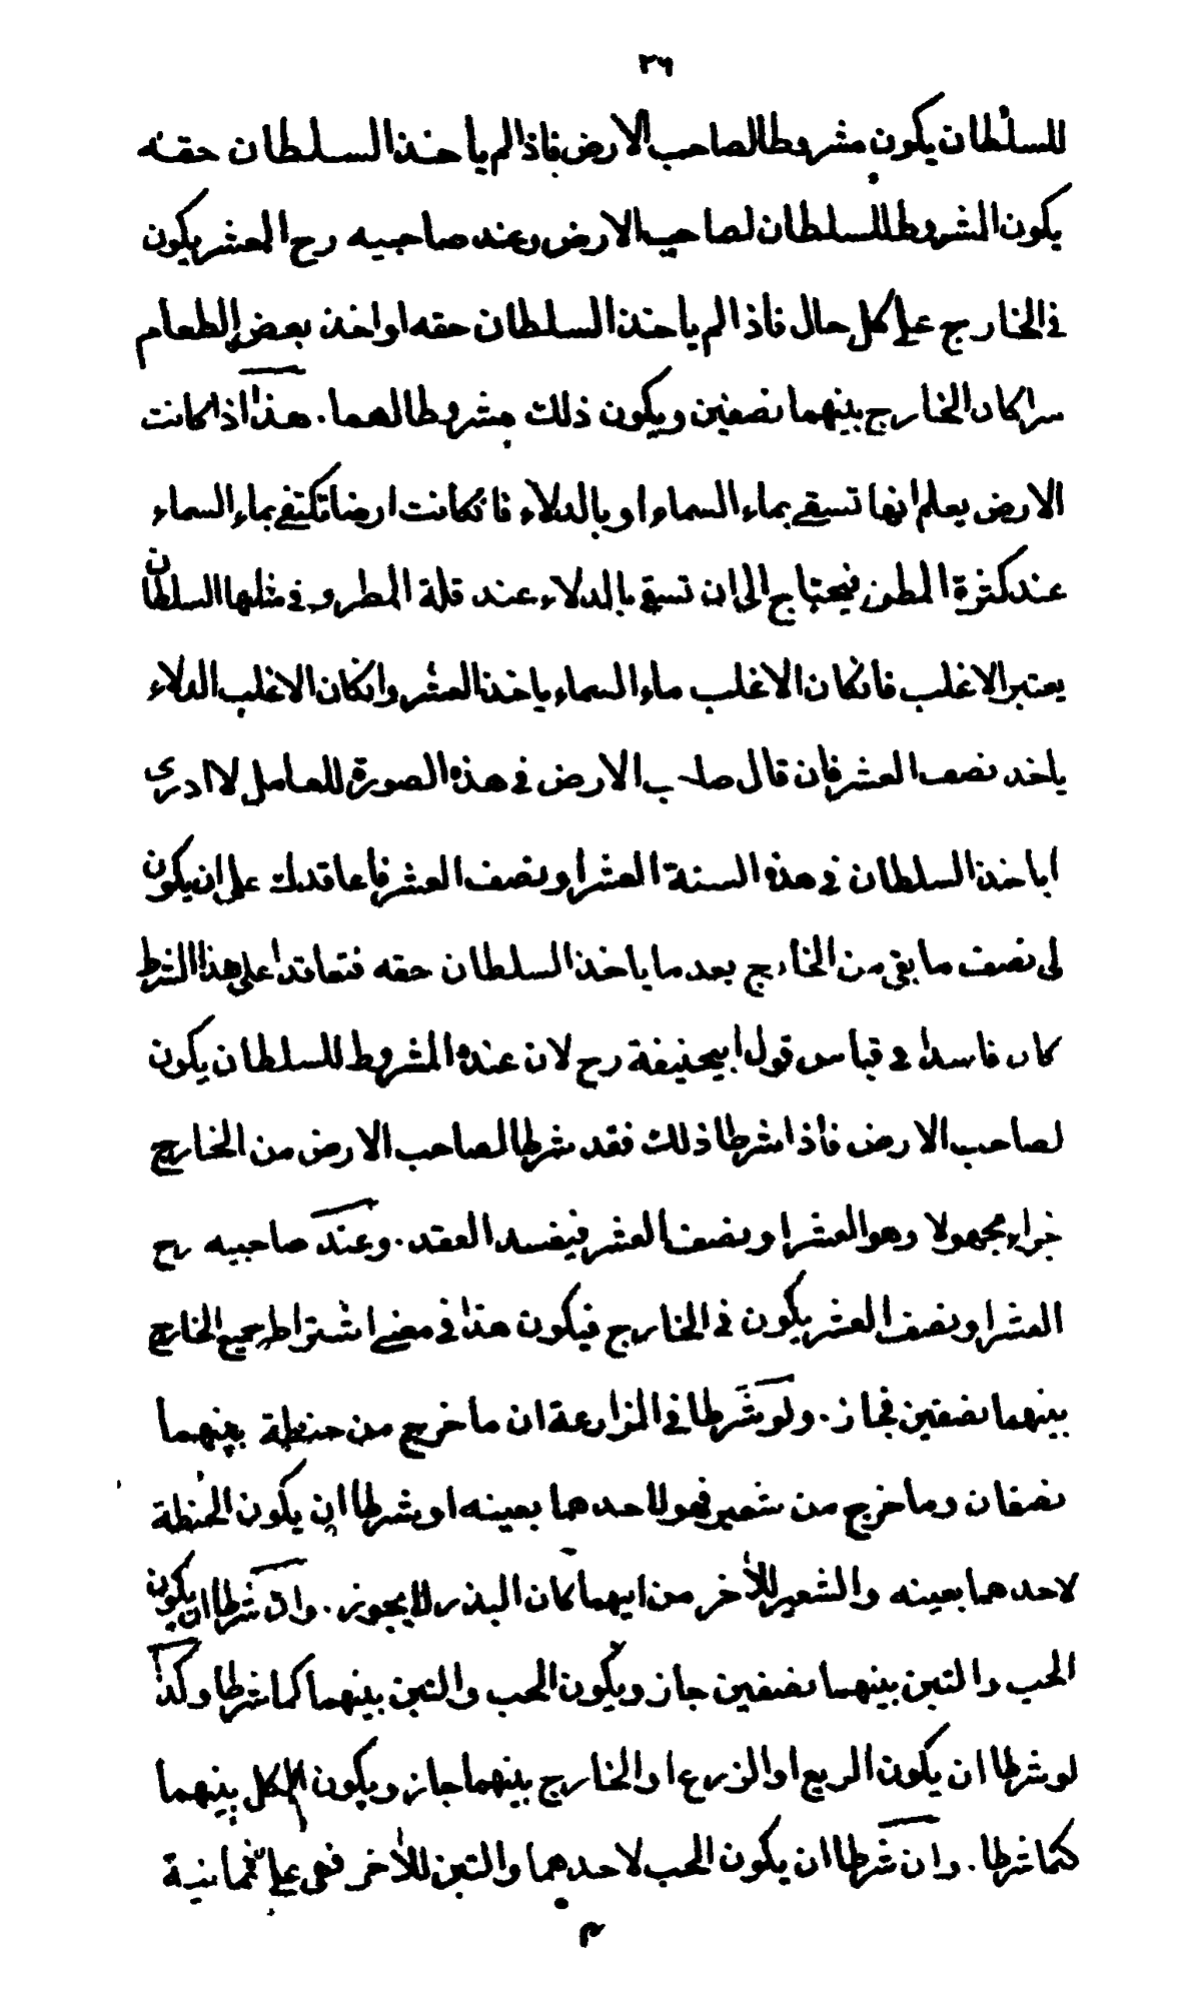 ٢٦
للسلطان يكون مشروطا لصاحب الارض فاذا لم يأخذ السلطان حقه
يكون المشروط للسلطان لصاحب الارض وعند صاحبيه رح العشر يكون
في الخارج على كل حال فاذا لم ياخذ السلطان حقه او اخذ بعض الطعام
سرا كان الخارج بينهما نصفين ويكون ذلك مشروطا لهما . هذا اذا كانت
الارض يعلم انها تسقى بماء السماء او بالدلاء فانكانت ارضا تكتفي بماء السماء
عند كثرة المطر فيحتاج الى ان تسقى بالدلاء عند قلة المطر وفي مثلها السلطان
يعتبر الاغلب فانكان الاغلب ماء السماء ياخذ العشر وانكان الاغلب الدلاء
ياخذ نصف العشر فان قال صاحب الارض في هذه الصورة للعامل لا ادري
اياخذ السلطان في هذه السنة العشر او نصف العشر فاعاقدك على ان يكون
لي نصف ما بقي من الخارج بعد ما ياخذ السلطان حقه فتعاقدا على هذا الشرط
كان فاسدا في قياس قول ابيحنيفة رح لان عنده المشروط للسلطان يكون
لصاحب الارض فاذا شرطا ذلك فقد شرطا لصاحب الارض من الخارج
جزاء مجهولا وهو العشر او نصف العشر فيفسد العقد . وعند صاحبيه رح
العشر او نصف العشر يكون في الخارج فيكون هذا في معنى اشتراط جميع الخارج
بينهما نصفين فجاز . ولو شرطا في المزارعة ان ما خرج من حنطة بينهما
نصفان وما خرج من شعير فهو لاحدهما بعينه او شرطا ان يكون الحنطة
لاحدهما بعينه والشعير للأخر من ايهما كان البذر لا يجوز . وان شرطا ان يكون
الحب والتبن بينهما نصفين جاز ويكون الحب والتبن بينهما كما شرطا وكذا
لو شرطا ان يكون الريع او الزرع او الخارج بينهما جاز ويكون الكل بينهما
كما شرطا . وان شرطا ان يكون الحب لاحدهما والتبن للأخر فهى على ثمانية
م